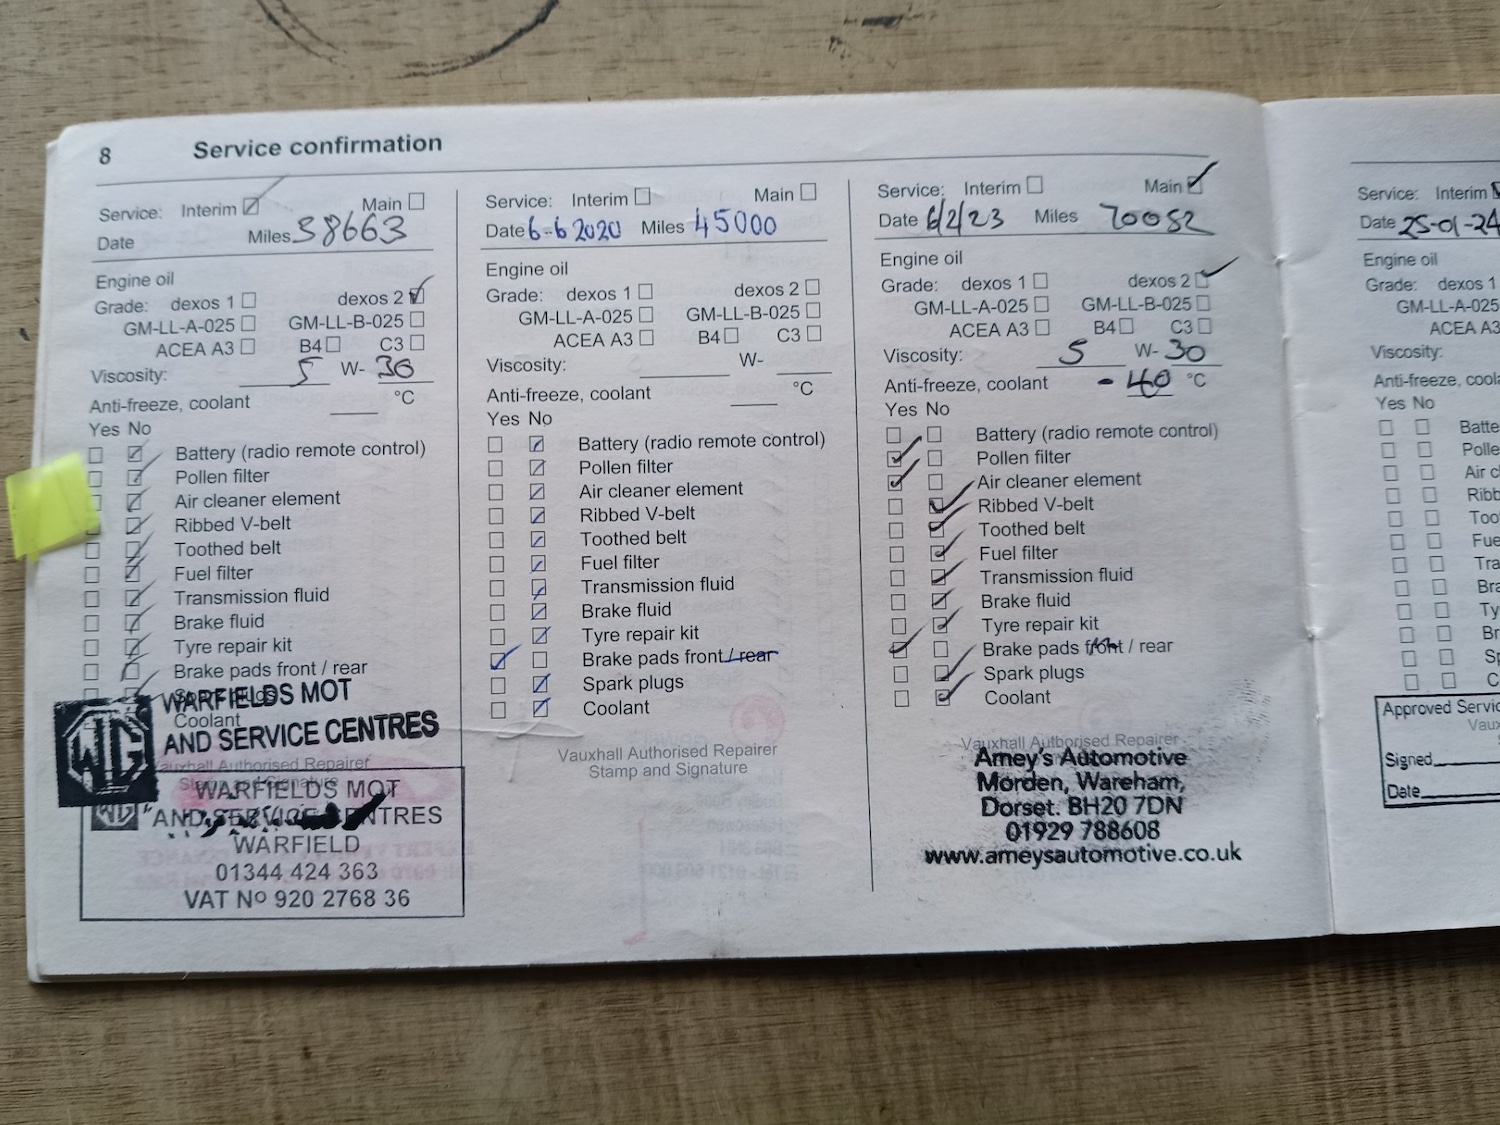 8 Service confirmation
Service: Interim Main
Date Miles 38663
Engine oil
Grade: dexos 1 dexos 2
GM-LL-A-025 GM-LL-B-025
ACEA A3 B4 C3
Viscosity: 5 W- 30
Anti-freeze, coolant °C
Yes No
Battery (radio remote control)
Pollen filter
Air cleaner element
Ribbed V-belt
Toothed belt
Fuel filter
Transmission fluid
Brake fluid
Tyre repair kit
Brake pads front / rear
Spark plugs
Coolant
WARFIELDS MOT
AND SERVICE CENTRES
Vauxhall Authorised Repairer
Stamp and Signature
WARFIELDS MOT
AND SERVICE CENTRES
WARFIELD
01344 424 363
VAT No 920 2768 36
Service: Interim Main
Date 6-6 2020 Miles 45000
Engine oil
Grade: dexos 1 dexos 2
GM-LL-A-025 GM-LL-B-025
ACEA A3 B4 C3
Viscosity: W-
Anti-freeze, coolant °C
Yes No
Battery (radio remote control)
Pollen filter
Air cleaner element
Ribbed V-belt
Toothed belt
Fuel filter
Transmission fluid
Brake fluid
Tyre repair kit
Brake pads front / rear
Spark plugs
Coolant
Vauxhall Authorised Repairer
Stamp and Signature
Service: Interim Main
Date 6/2/23 Miles 70052
Engine oil
Grade: dexos 1 dexos 2
GM-LL-A-025 GM-LL-B-025
ACEA A3 B4 C3
Viscosity: 5 W- 30
Anti-freeze, coolant - 40 °C
Yes No
Battery (radio remote control)
Pollen filter
Air cleaner element
Ribbed V-belt
Toothed belt
Fuel filter
Transmission fluid
Brake fluid
Tyre repair kit
Brake pads front / rear
Spark plugs
Coolant
Vauxhall Authorised Repairer
Amey's Automotive
Morden, Wareham,
Dorset. BH20 7DN
01929 788608
www.ameysautomotive.co.uk
Service: Interim
Date 25-01-24
Engine oil
Grade: dexos 1
GM-LL-A-025
ACEA A3
Viscosity:
Anti-freeze, coola
Yes No
Batte
Polle
Air cl
Ribb
Too
Fue
Tra
Bra
Ty
Br
Sp
C
Approved Servic
Vaux
Signed
Date